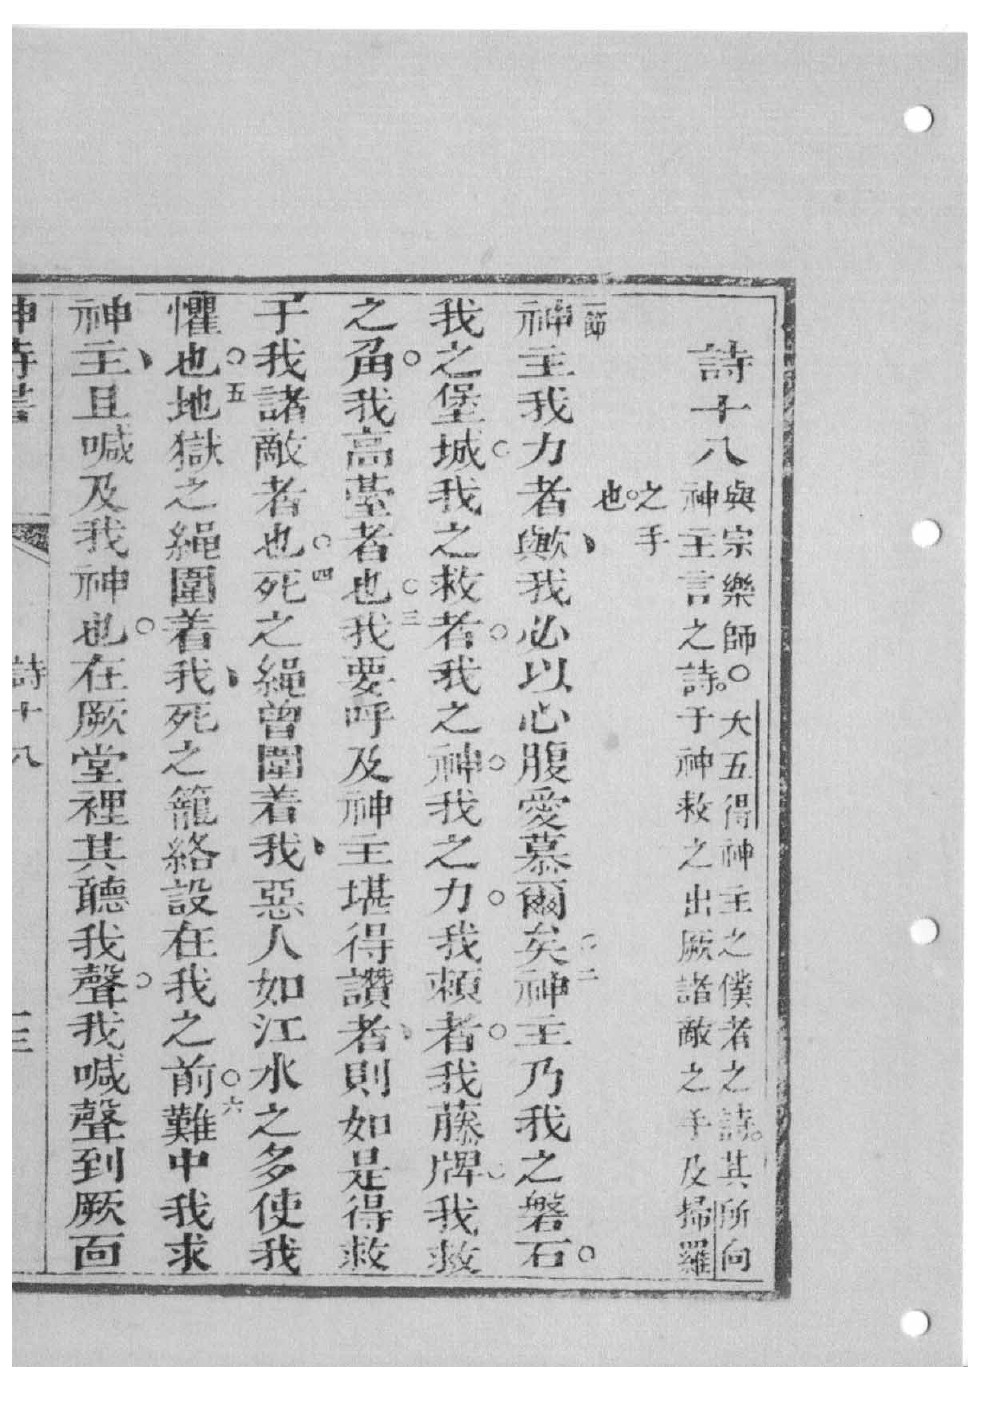 詩十八
與宗樂師○大五得神主之僕者之詩。其所向
神主言之詩。于神救之出厥諸敵之手及掃羅
之手
也。
一節
神主我力者歟、我必以心腹愛慕爾矣○二神主乃我之磐石○
我之堡城○我之救者○我之神○我之力○我賴者○我藤牌○我救
之角○我高臺者也○三我要呼及神主堪得讚者、則如是得救
于我諸敵者也○四死之繩曾圍着我、惡人如江水之多使我
懼也○五地獄之繩圍着我、死之籠絡設在我之前○六難中我求
神主、且喊及我神也○在厥堂裡其聽我聲○我喊聲到厥面
神詩書
詩十八